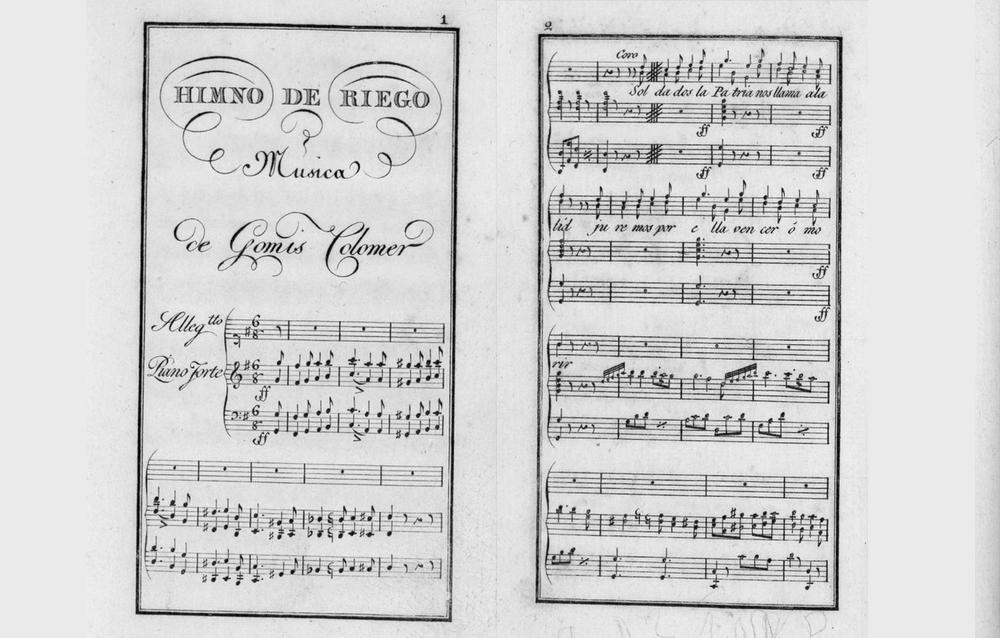 1
HIMNO DE RIEGO
Musica
de Gomis Colomer
Alleg.tto
Piano Forte
6 8
6 8
ff
6 8
ff
2
Coro
Sol da dos la Pa tria nos llama a la
ff ff
ff ff
lid ju re mos por e lla ven cer ó mo
ff
ff
rir